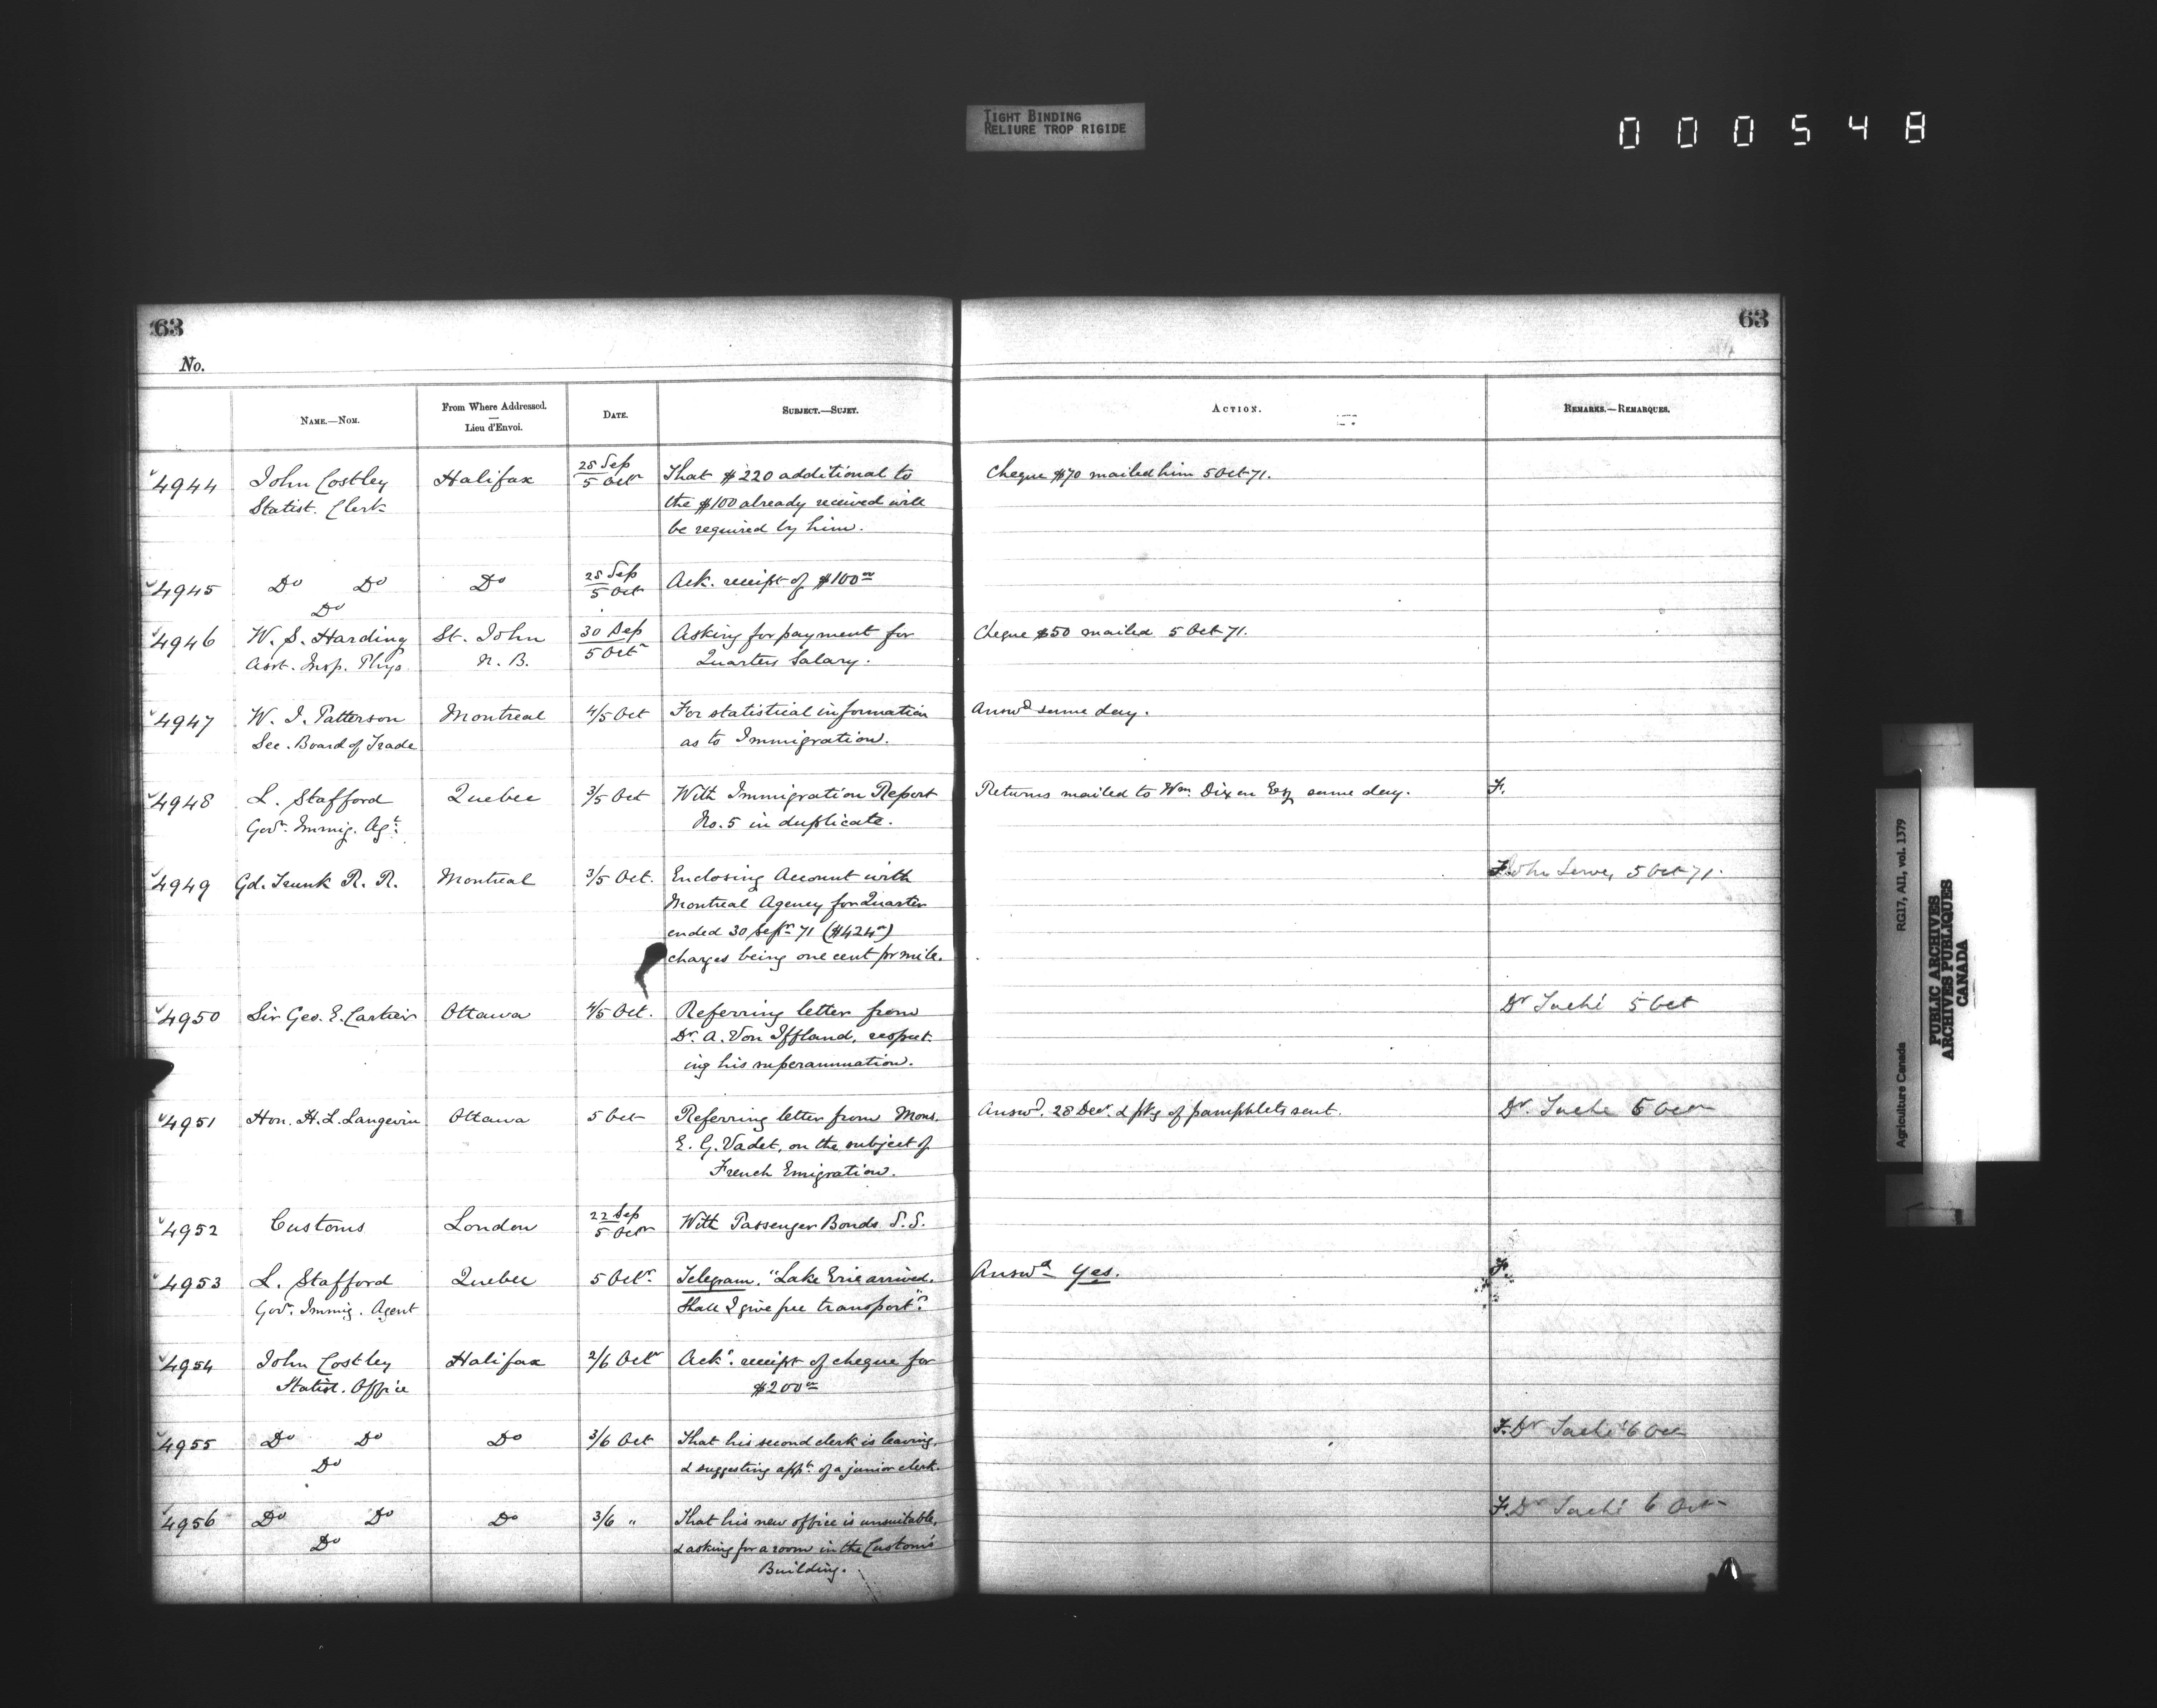 TIGHT BINDING
RELIURE TROP RIGIDE
000548
63
63
No.
NAME.—NOM.
From Where Addressed.
—
Lieu d'Envoi.
DATE.
SUBJECT.—SUJET.
ACTION.
REMARKS.—REMARQUES.
4944 John Costley Halifax 28 Sep That $220 additional to Cheque $70 mailed him 5 Oct 71.
Statist. Clerk 5 Octr the $100 already received will
be required by him.
4945 Do Do Do 28 Sep Ack. receipt of $100 00
Do 5 Oct
4946 W. S. Harding St. John 30 Sep Asking for payment for Cheque $50 mailed 5 Oct 71.
Asst. Insp. Phys. N. B. 5 Octr Quarters Salary.
4947 W. I. Patterson Montreal 4/5 Oct For statistical information Answd same day.
Sec. Board of Trade as to Immigration.
4948 L. Stafford Quebec 3/5 Oct With Immigration Report Returns mailed to Wm. Dixon Esq same day. F.
Govr. Immig. Agt. No. 5 in duplicate.
4949 Gd. Trunk R. R. Montreal 3/5 Oct. Enclosing Account with F. John Lowe, 5 Oct 71.
Montreal Agency for Quarter
ended 30 Septr 71 ($424 00)
charges being one cent pr mile.
4950 Sir Geo. E. Cartier Ottawa 4/5 Oct. Referring letter from Dr Taché 5 Oct
Dr. A. Von Iffland, respect-
ing his superannuation.
4951 Hon. H. L. Langevin Ottawa 5 Oct Referring letter from Mons. Answd. 28 Decr. & pkg of pamphlets sent. Dr. Taché 5 Octr
E. G. Vadet, on the subject of
French Emigration.
4952 Customs London 22 Sep With Passenger Bonds S.S.
5 Octr
4953 L. Stafford Quebec 5 Octr. Telegram. "Lake Erie arrived. Answd Yes. F.
Govr. Immig. Agent Shall I give free transport"?
4954 John Costley Halifax 2/6 Octr Ackg. receipt of cheque for
Statist. Office $200 00
4955 Do Do Do 3/6 Oct That his second clerk is leaving, F. Dr Taché 6 Oct
Do & suggesting appt. of a junior clerk.
4956 Do Do Do 3/6 " That his new office is unsuitable, F. Dr Taché 6 Oct
Do & asking for a room in the Customs
Building.
Agriculture Canada RG17, AII, vol. 1379
PUBLIC ARCHIVES
ARCHIVES PUBLIQUES
CANADA